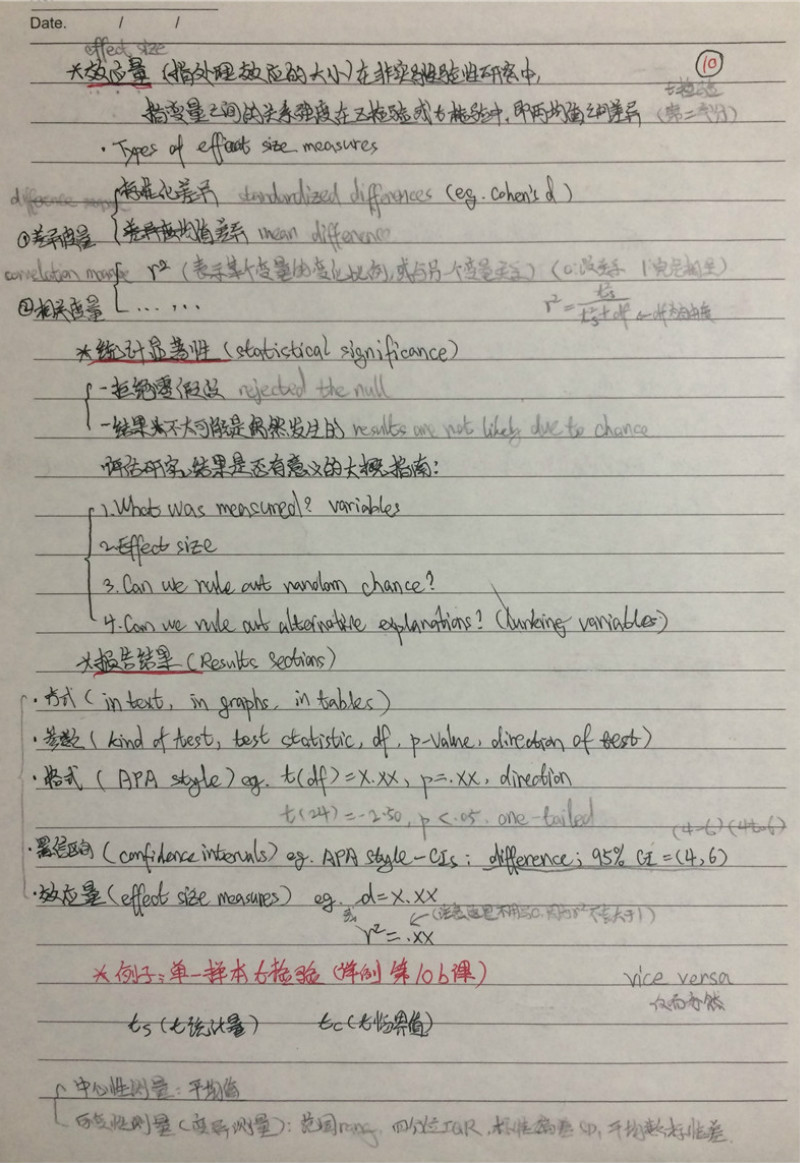 Date. / /
effect size
*效应量（指处理效应的大小）在非实验性研究中， ⑩
指变量之间的关系强度在Z检验或t检验中，即两均值之间差异 t检验（第二部分）
· Types of effect size measures
标准化差异 standardized differences (eg. Cohen's d)
①差异度量 均值差异 mean difference
correlation r² （表示某个变量的变化比例，或与另一个变量关系）（0:没关系 1:完全相关）
②相关度量 ... ... r² = ts²/ts²+df ← df为自由度
*统计显著性（statistical significance）
-拒绝零假设 rejected the null
-结果不大可能是偶然发生的 results are not likely due to chance
评估研究结果是否有意义的大概指南：
1.What was measured? variables
2.Effect size
3.Can we rule out random chance?
4.Can we rule out alternative explanations? (lurking variables)
*报告结果（Results sections）
·方式（in text, in graphs, in tables）
·参数（kind of test, test statistic, df, p-value, direction of test）
·格式（APA style）eg. t(df)=X.XX, p=.XX, direction
t(24)=-2.50, p<.05. one-tailed
(4-6) (4to6)
·置信区间（confidence intervals）eg. APA style-CIs: difference; 95% CI=(4,6)
·效应量（effect size measures） eg. d=X.XX
r²=.XX
*例子：单一样本t检验（样例 第10b课） vice versa
反而亦然
ts（t统计量） tc（t临界值）
中心性测量：平均值
四分位IQR，标准偏差SD，平均数标准差